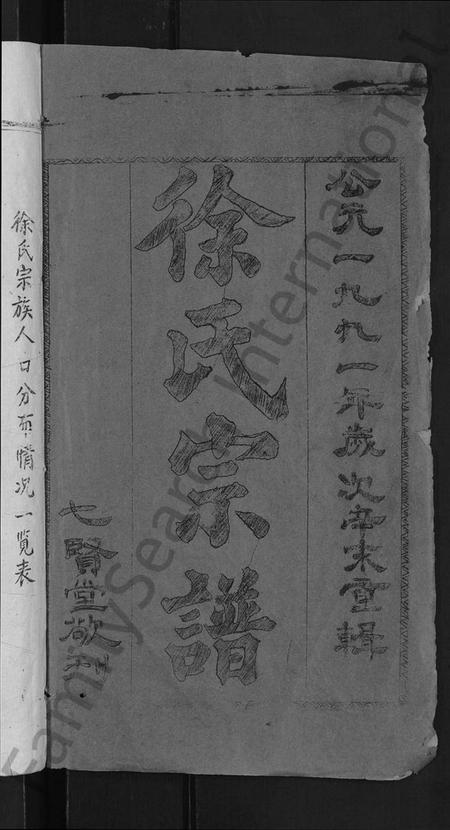 公元一九九一年歲次辛未重輯
徐氏宗譜
七賢堂敬刊
徐氏宗族人口分布情况一览表
FamilySearch International